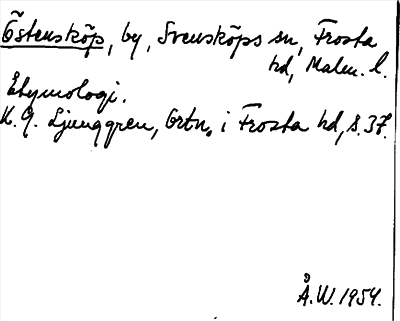 Östensköp, by, Svensköps sn, Frosta
hd, Malm. l.
Etymologi.
K. G. Ljunggren, Ortn. i Frosta hd, s. 37.
Å.W. 1954.